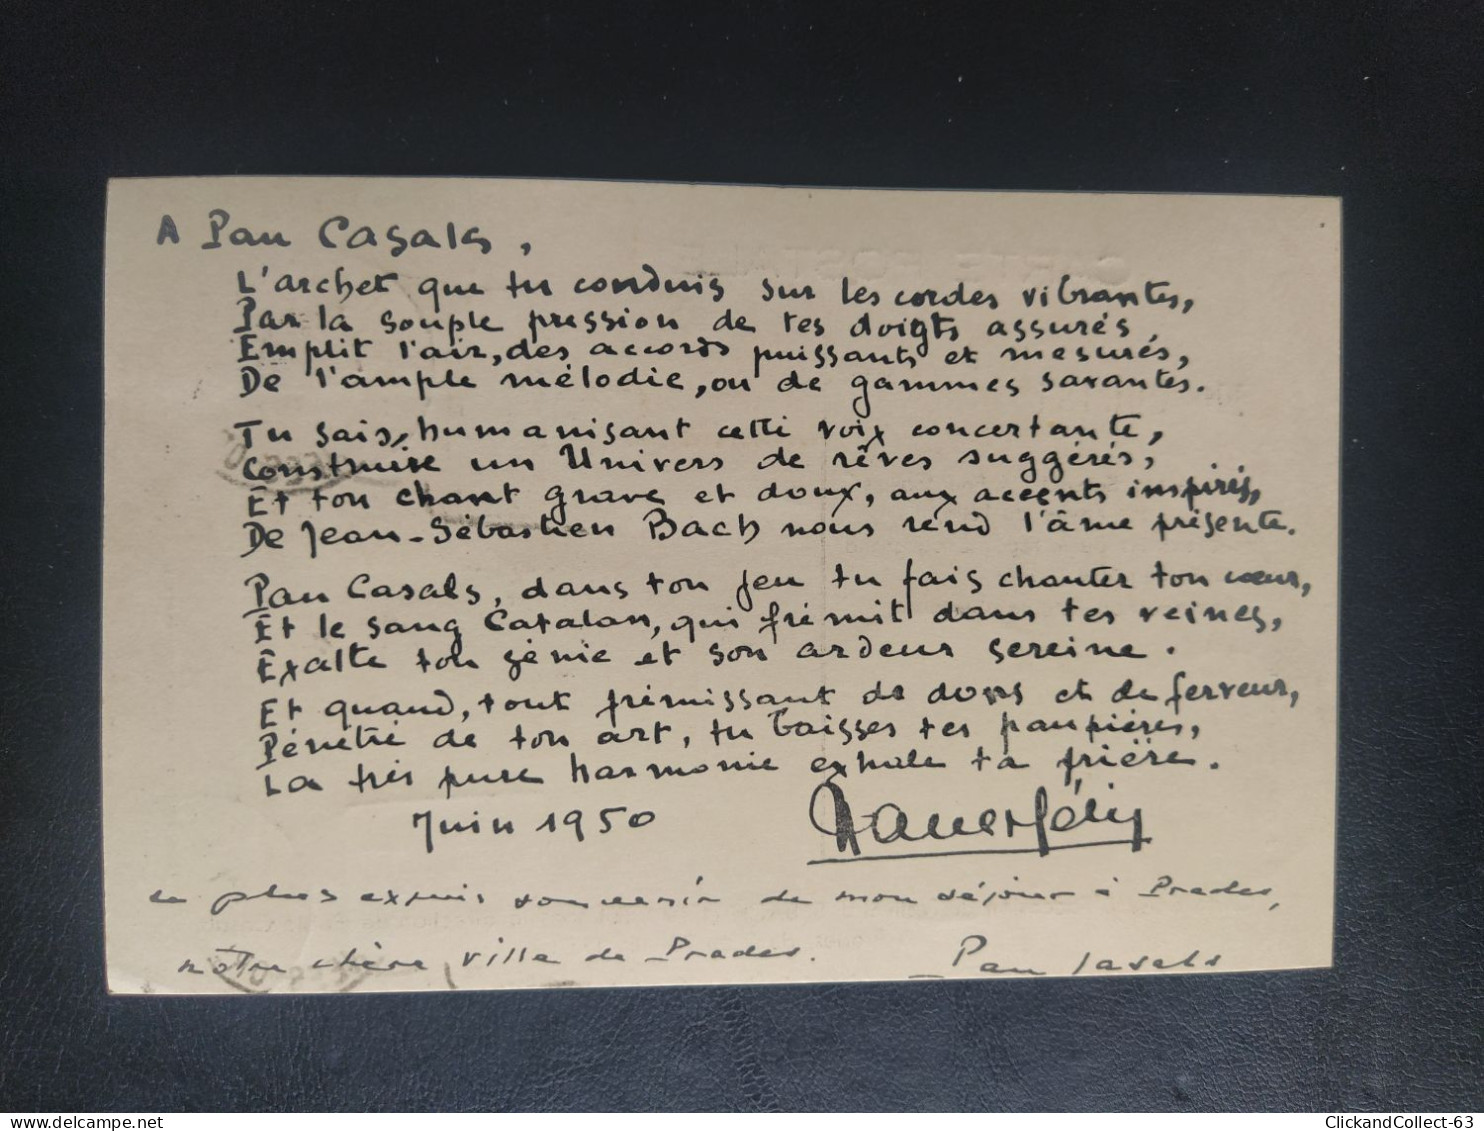 A Pau Casals,
L'archet que tu conduis sur les cordes vibrantes,
Par la souple pression de tes doigts assurés,
Emplit l'air, des accords puissants et mesurés,
De l'ample mélodie, ou de gammes savantes.
Tu sais, humanisant cette voix concertante,
Construire un Univers de rêves suggérés,
Et ton chant grave et doux, aux accents inspirés,
De Jean-Sébastien Bach nous rend l'âme présente.
Pau Casals, dans ton jeu tu fais chanter ton cœur,
Et le sang Catalan, qui frémit dans tes veines,
Exalte ton génie et son ardeur sereine.
Et quand, tout frémissant de dons et de ferveur,
Pénétré de ton art, tu baisses tes paupières,
La très pure harmonie exhale ta prière.
Juin 1950
plus exquis souvenir de mon séjour à Prades,
notre chère ville de Prades. Pau Casals
CARTE POSTALE
ClickandCollect-63